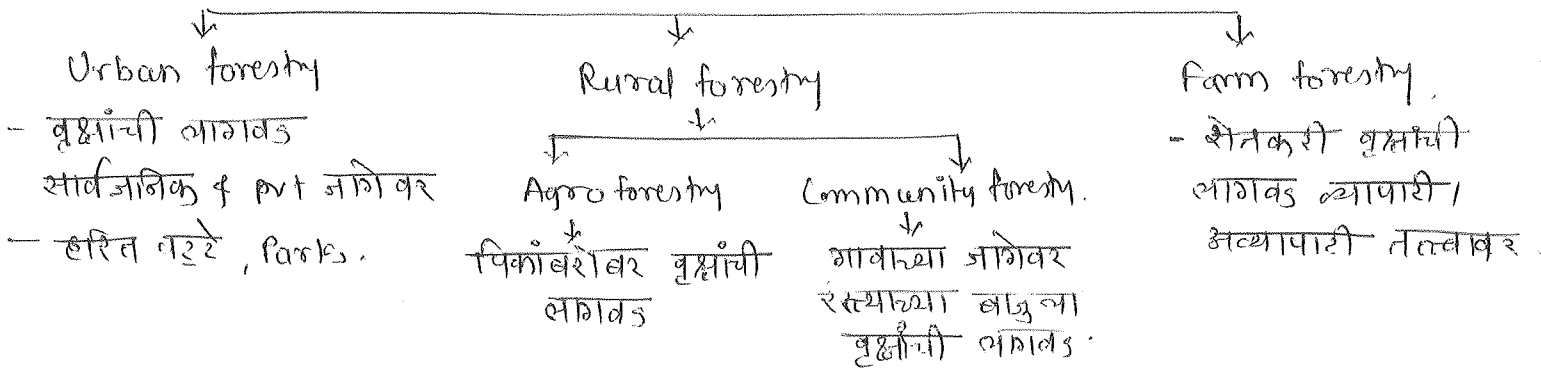 Urban forestry
- वृक्षांची लागवड
सार्वजनिक & pvt जागेवर
- हरित पट्टे, Parks.
Rural forestry
Agro forestry
पिकांबरोबर वृक्षांची
लागवड
Community forestry.
गावाच्या जागेवर
रस्त्याच्या बाजुला
वृक्षांची लागवड.
Farm forestry.
- शेतकरी वृक्षांची
लागवड व्यापारी/
अव्यापारी तत्त्वावर.